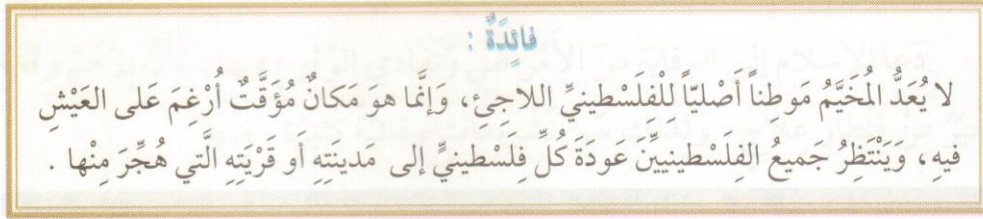 فائِدَةٌ :
لا يُعَدُّ المُخَيَّمُ مَوطِناً أَصْلِيّاً لِلْفِلَسْطينيِّ اللاجِئ، وَإِنَّما هوَ مَكانٌ مُؤَقَّتٌ أُرْغِمَ عَلى العَيْشِ
فيهِ، وَيَنْتَظِرُ جَميعُ الفِلَسْطينيينَ عَودَةَ كُلِّ فِلَسْطينيٍّ إلى مَدينَتِهِ أَو قَرْيَتِهِ الَّتي هُجِّرَ مِنْها .